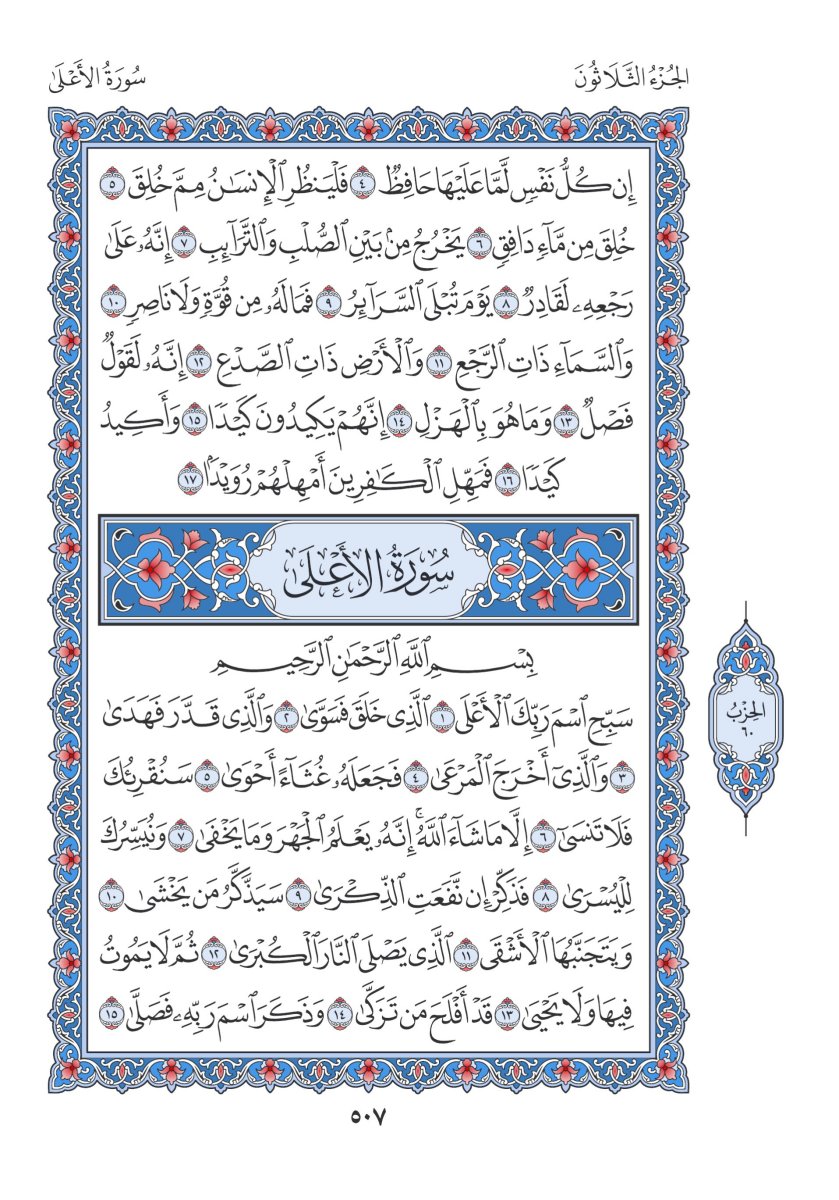 الجُزْءُ الثَّلَاثُونَ
سُورَةُ الأَعْلَىٰ
إِن كُلُّ نَفْسٍ لَّمَّا عَلَيْهَا حَافِظٌ ٤ فَلْيَنظُرِ ٱلْإِنسَٰنُ مِمَّ خُلِقَ ٥
خُلِقَ مِن مَّآءٍ دَافِقٍ ٦ يَخْرُجُ مِنۢ بَيْنِ ٱلصُّلْبِ وَٱلتَّرَآئِبِ ٧ إِنَّهُۥ عَلَىٰ
رَجْعِهِۦ لَقَادِرٌ ٨ يَوْمَ تُبْلَى ٱلسَّرَآئِرُ ٩ فَمَا لَهُۥ مِن قُوَّةٍ وَلَا نَاصِرٍ ١٠
وَٱلسَّمَآءِ ذَاتِ ٱلرَّجْعِ ١١ وَٱلْأَرْضِ ذَاتِ ٱلصَّدْعِ ١٢ إِنَّهُۥ لَقَوْلٌ
فَصْلٌ ١٣ وَمَا هُوَ بِٱلْهَزْلِ ١٤ إِنَّهُمْ يَكِيدُونَ كَيْدًا ١٥ وَأَكِيدُ
كَيْدًا ١٦ فَمَهِّلِ ٱلْكَٰفِرِينَ أَمْهِلْهُمْ رُوَيْدًۢا ١٧
سُورَةُ الأَعْلَىٰ
بِسْمِ ٱللَّهِ ٱلرَّحْمَٰنِ ٱلرَّحِيمِ
سَبِّحِ ٱسْمَ رَبِّكَ ٱلْأَعْلَى ١ ٱلَّذِى خَلَقَ فَسَوَّىٰ ٢ وَٱلَّذِى قَدَّرَ فَهَدَىٰ
٣ وَٱلَّذِىٓ أَخْرَجَ ٱلْمَرْعَىٰ ٤ فَجَعَلَهُۥ غُثَآءً أَحْوَىٰ ٥ سَنُقْرِئُكَ
فَلَا تَنسَىٰٓ ٦ إِلَّا مَا شَآءَ ٱللَّهُ ۚ إِنَّهُۥ يَعْلَمُ ٱلْجَهْرَ وَمَا يَخْفَىٰ ٧ وَنُيَسِّرُكَ
لِلْيُسْرَىٰ ٨ فَذَكِّرْ إِن نَّفَعَتِ ٱلذِّكْرَىٰ ٩ سَيَذَّكَّرُ مَن يَخْشَىٰ ١٠
وَيَتَجَنَّبُهَا ٱلْأَشْقَى ١١ ٱلَّذِى يَصْلَى ٱلنَّارَ ٱلْكُبْرَىٰ ١٢ ثُمَّ لَا يَمُوتُ
فِيهَا وَلَا يَحْيَىٰ ١٣ قَدْ أَفْلَحَ مَن تَزَكَّىٰ ١٤ وَذَكَرَ ٱسْمَ رَبِّهِۦ فَصَلَّىٰ ١٥
الحِزْبُ
٦٠
٥٠٧